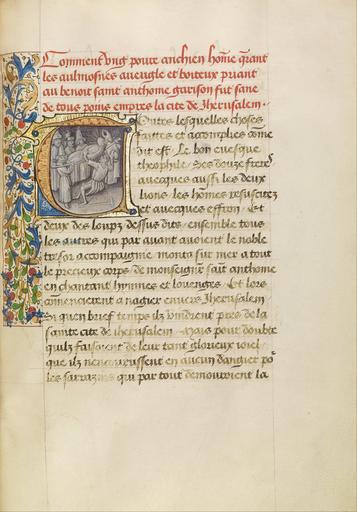 Comment vng poure anchien home querant
les aulmosnes aueugle et boiteux priant
au benoit saint anthome garison fut sane
de tous poins empres la cite de Jherusalem.
Outres lesquelles choses
faittes et acomplies come
dit est. Le bon euesque
theophile. Ses douze freres
auecques aussi les deux
lions. les homes resuscitez
et auecques effron. Et
deux des loupz dessus dits. ensemble tous
les autres qui par auant auoient le noble
tresor accompaigne. monta sur mer a tout
le precieux corps de monseignr saint anthome
en chantant hympnes et louenges. Et lors
commencierent a nagier enuers Jherusalem
Si quen brief temps ilz vindrent pres de la
sainte cite de iherusalem. Mais pour doubte
quilz faisoient de leur tant glorieux ioiel
que ilz nencourussent en aucun dangier por
les sarrazins qui par tout demouroient la